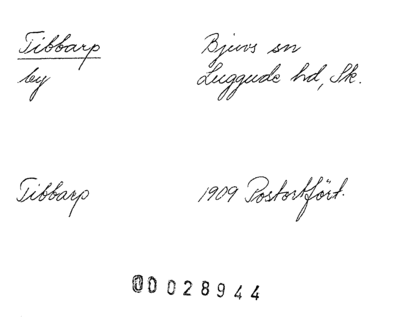 Tibbarp Bjuvs sn
by Luggude hd, Sk.
Tibbarp 1909 Postortfört.
00028944